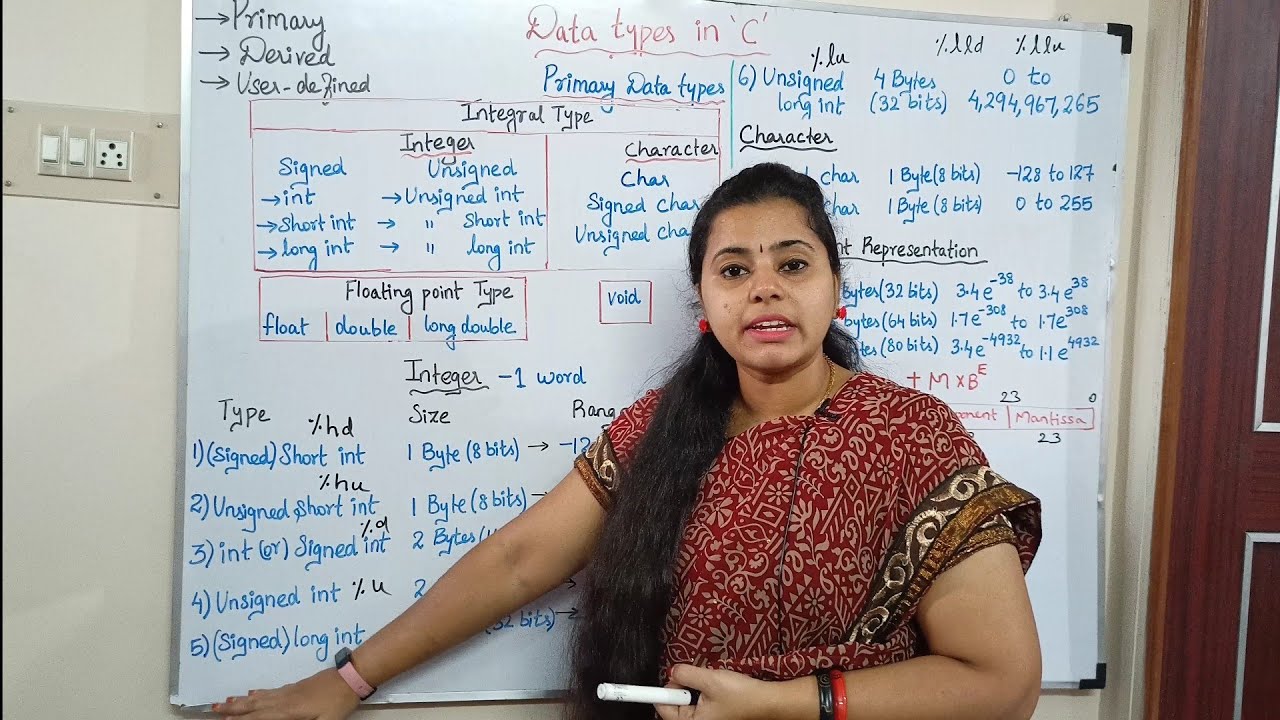 →Primary
→ Derived
→ User-defined
Data types in 'C'
Primary Data types
Integral Type
Integer
Signed Unsigned
→int →Unsigned int
→Short int → " Short int
→long int → " long int
Character
Char
Signed Char
Unsigned Cha
Floating point Type
float double long double
void
Integer -1 word
Type Size Rang
%hd
1)(Signed)Short int 1 Byte (8 bits) → -12
%hu
2)Unsigned Short int 1 Byte (8 bits) →
%d
3) int (or) Signed int 2 Bytes (1
4) Unsigned int %u 2 →
5)(Signed)long int 32 bits)→
%lu %lld %llu
6) Unsigned 4 Bytes 0 to
long int (32 bits) 4,294,967,265
Character
char 1 Byte(8 bits) -128 to 127
char 1 Byte(8 bits) 0 to 255
Representation
bytes(32 bits) 3.4e-38 to 3.4e38
bytes(64 bits) 1.7e-308 to 1.7e308
tes(80 bits) 3.4e-4932 to 1.1e4932
+ M×BE
23 0
onent Mantissa
23